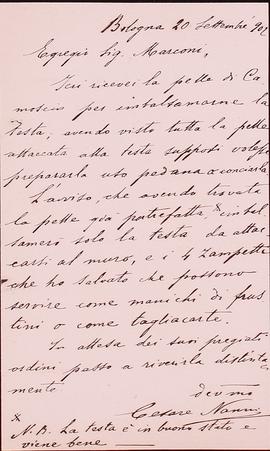 Bologna 20 Settembre 902
Egregio Sig. Marconi,
Ieri ricevei la pelle di Ca
moscio per imbalsamarne la
testa, avendo visto tutta la pelle
attaccata alla testa supposi volesse
prepararla uso pedana o conciarla
L'avviso, che avendo trovata
la pelle già putrefatta, x imbal
samerò solo la testa da attac
carsi al muro, e i 4 Zampetti
che ho salvato che possono
servire come manichi di frus
tini o come tagliacarte.
In attesa dei suoi pregiati
ordini passo a riverirla distinta
mente
devmo
Cesare Nanni
x
N.B. La testa è in buono stato e
viene bene